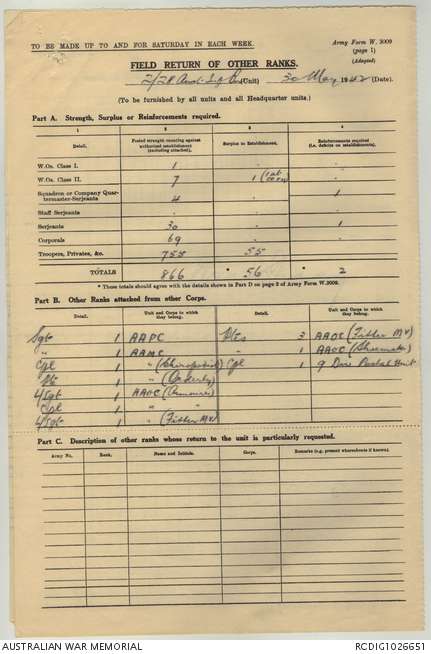 TO BE MADE UP TO AND FOR SATURDAY IN EACH WEEK.
Army Form W. 3009
(page 1)
(Adapted)
FIELD RETURN OF OTHER RANKS.
2/28 Aust. Inf Bn (Unit) 30 May 1942 (Date).
(To be furnished by all units and all Headquarter units.)
Part A. Strength, Surplus or Reinforcements required.
1 2 3 4
Detail. Posted strength counting against authorized establishment (excluding attached). Surplus to Establishment. Reinforcements required (i.e. deficits on establishments).
W.Os. Class I. 1 . .
W.Os. Class II. 7 1 .
Squadron or Company Quartermaster-Serjeants 4 . 1
Staff Serjeants . . .
Serjeants 30 . 1
Corporals 69 . .
Troopers, Privates, &c. 755 55 .
TOTALS 866 * 56 * 2
* These totals should agree with the details shown in Part D on page 2 of Army Form W.3009.
Part B. Other Ranks attached from other Corps.
Detail. Unit and Corps to which they belong. Detail. Unit and Corps to which they belong.
Sgt 1 AAPC Ptes 3 AAOC (Fitter MV)
" 1 AAMC " 1 AAOC (Shoemaker)
Cpl 1 " (Chiropodist) Cpl 1 9 Div Postal Unit
Pte 1 "
L/Sgt 1 AAOC (Armourer)
Cpl 1 "
L/Sgt 1 " (Fitter MV)
Part C. Description of other ranks whose return to the unit is particularly requested.
Army No. Rank. Name and Initials. Corps. Remarks (e.g. present whereabouts if known).
AUSTRALIAN WAR MEMORIAL
RCDIG1026651